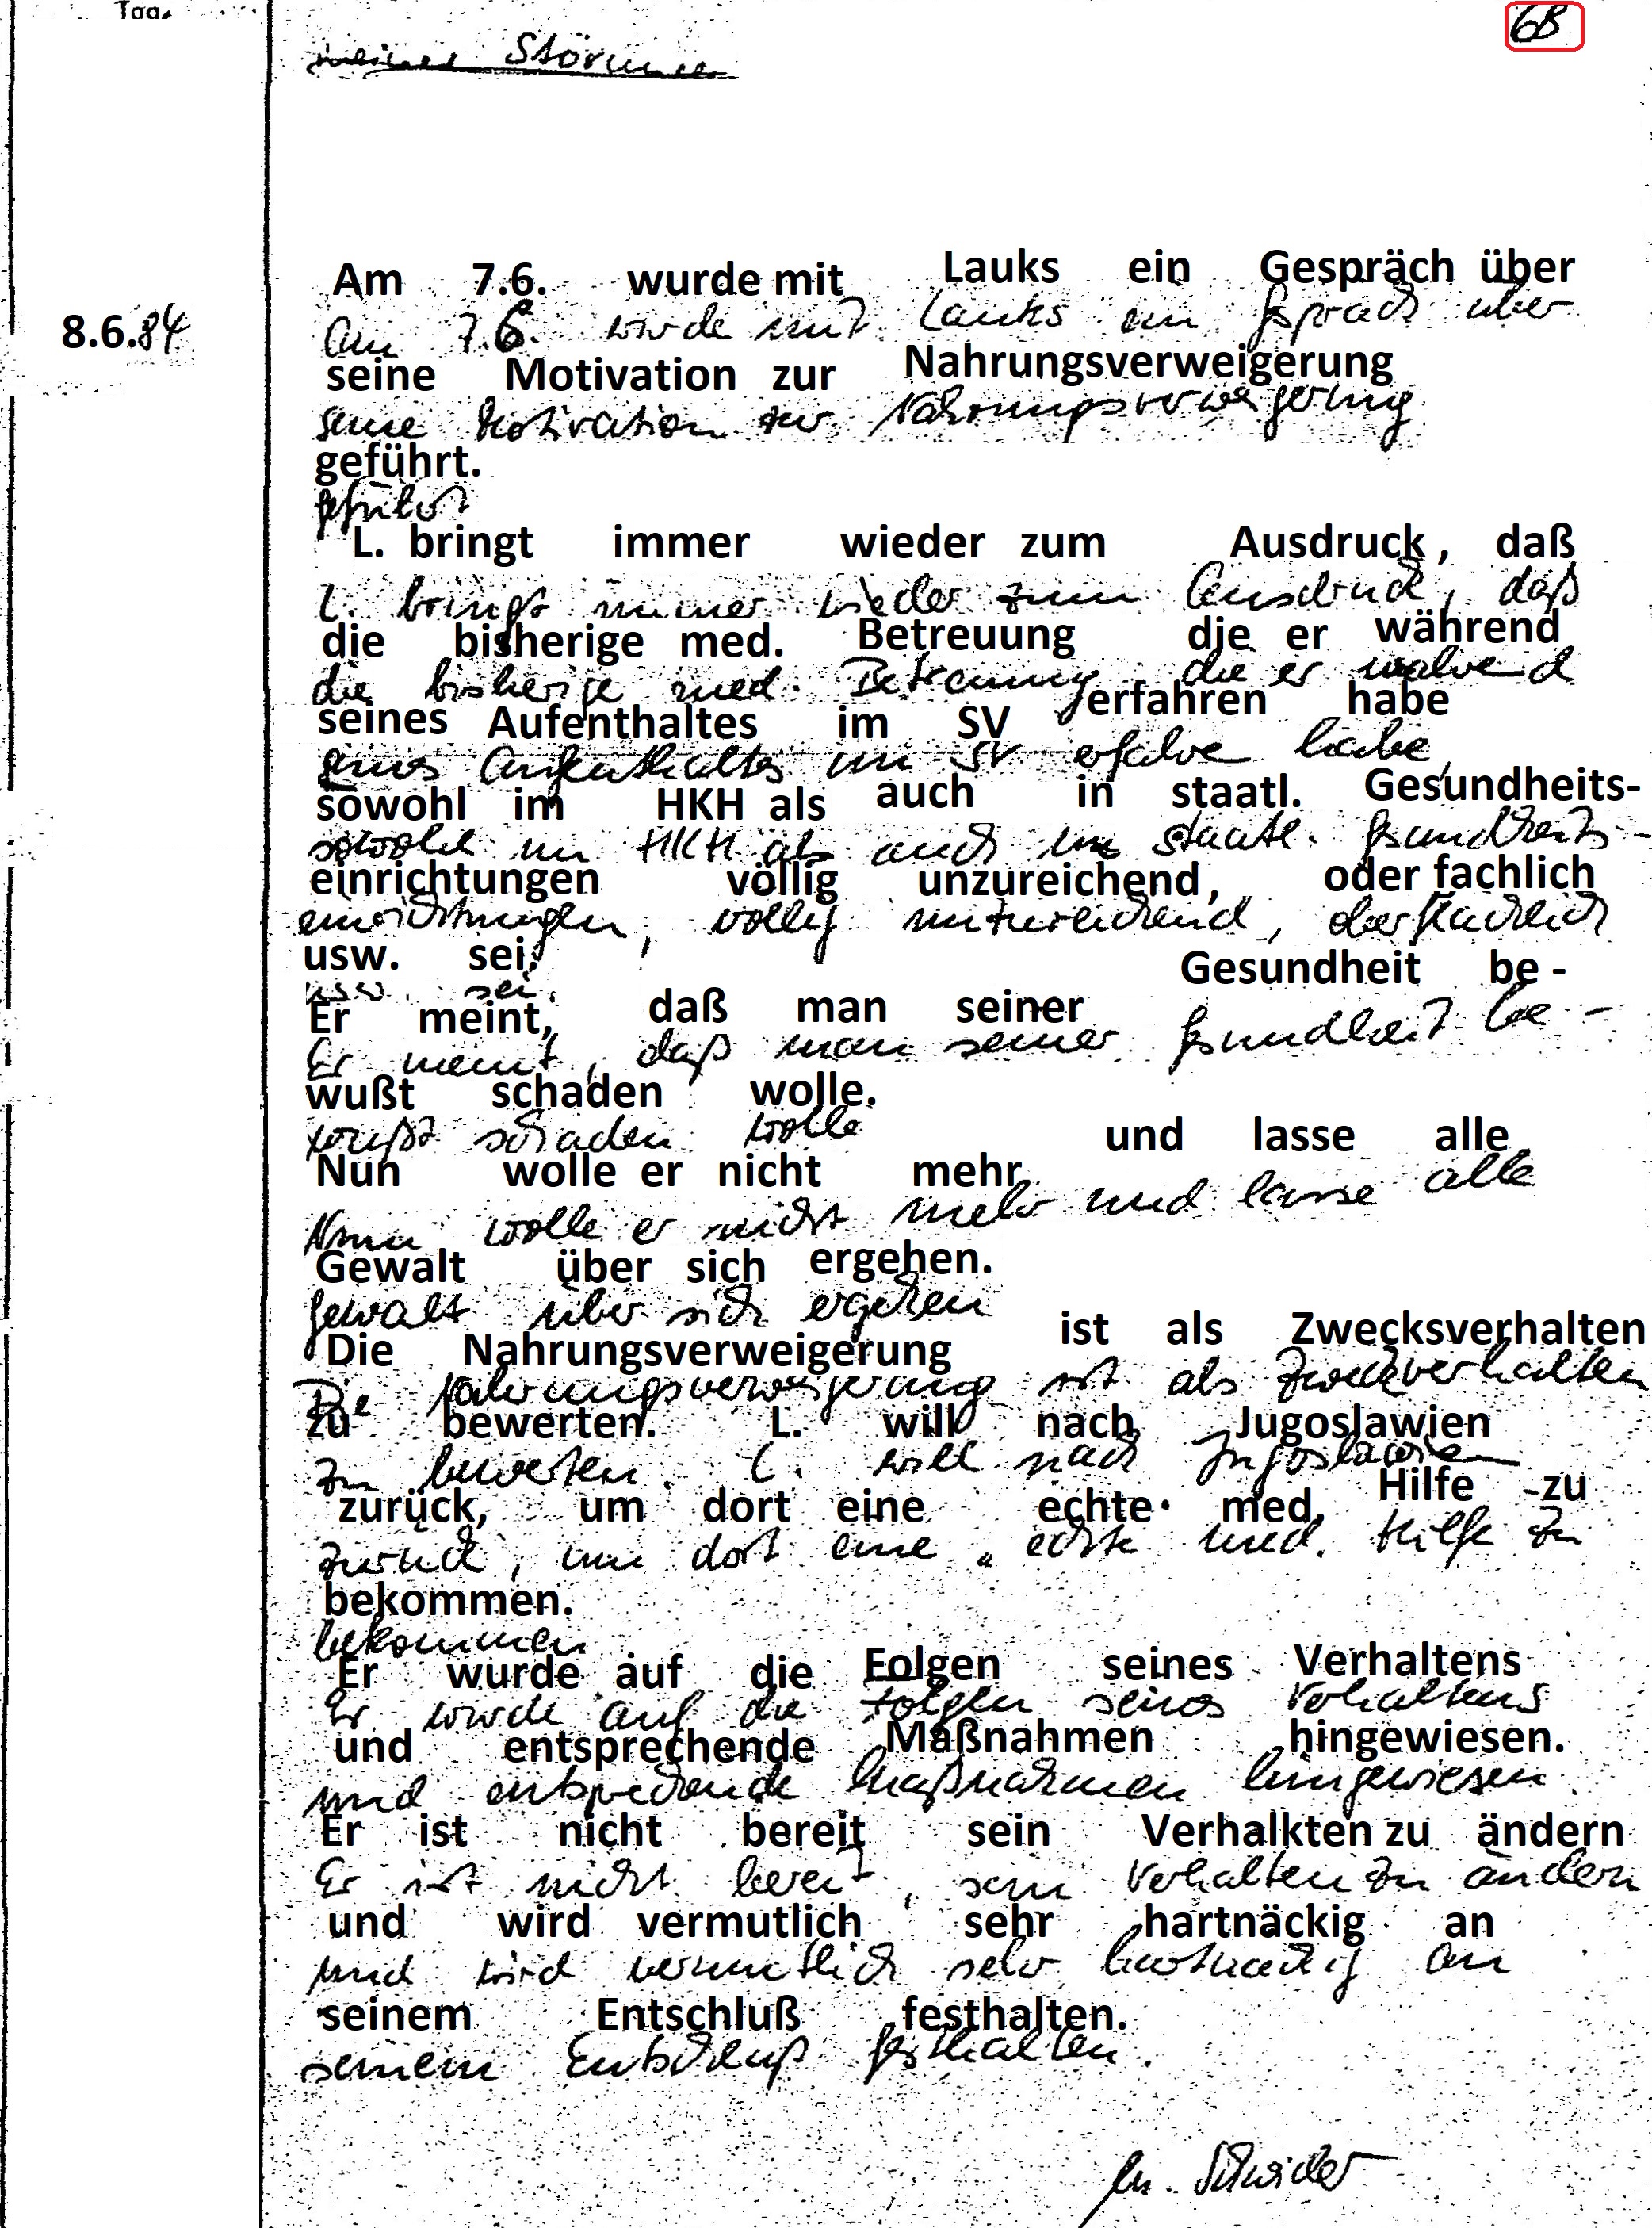 Tag
68
Störungen
8.6.84
Am 7.6. wurde mit Lauks ein Gespräch über
Am 7.6. wurde mit Lauks ein Gespräch über
seine Motivation zur Nahrungsverweigerung
seine Motivation zur Nahrungsverweigerung
geführt.
geführt
L. bringt immer wieder zum Ausdruck, daß
L. bringt immer wieder zum Ausdruck, daß
die bisherige med. Betreuung die er während
die bisherige med. Betreuung die er während
seines Aufenthaltes im SV erfahren habe
seines Aufenthaltes im SV erfahre habe,
sowohl im HKH als auch in staatl. Gesundheits-
sowohl im HKH als auch im staatl. Gesundheits-
einrichtungen völlig unzureichend, oder fachlich
einrichtungen, völlig unzureichend, oberflächlich
usw. sei.
usw. sei.
Er meint, daß man seiner Gesundheit be -
Er meint, daß man seiner Gesundheit be -
wußt schaden wolle.
wußt schaden wolle
Nun wolle er nicht mehr und lasse alle
Nun wolle er nicht mehr und lasse alle
Gewalt über sich ergehen.
Gewalt über sich ergehen
Die Nahrungsverweigerung ist als Zwecksverhalten
Die Nahrungsverweigerung ist als Zweckverhalten
zu bewerten. L. will nach Jugoslawien
zu bewerten. L. will nach Jugoslawien
zurück, um dort eine echte med. Hilfe zu
zurück, um dort eine „ echte med. Hilfe zu
bekommen.
bekommen.
Er wurde auf die Folgen seines Verhaltens
Er wurde auf die Folgen seines Verhaltens
und entsprechende Maßnahmen hingewiesen.
und entsprechende Maßnahmen hingewiesen.
Er ist nicht bereit sein Verhalkten zu ändern
Er ist nicht bereit, sein Verhalten zu ändern
und wird vermutlich sehr hartnäckig an
und wird vermutlich sehr hartnäckig an
seinem Entschluß festhalten.
seinem Entschluß festhalten.